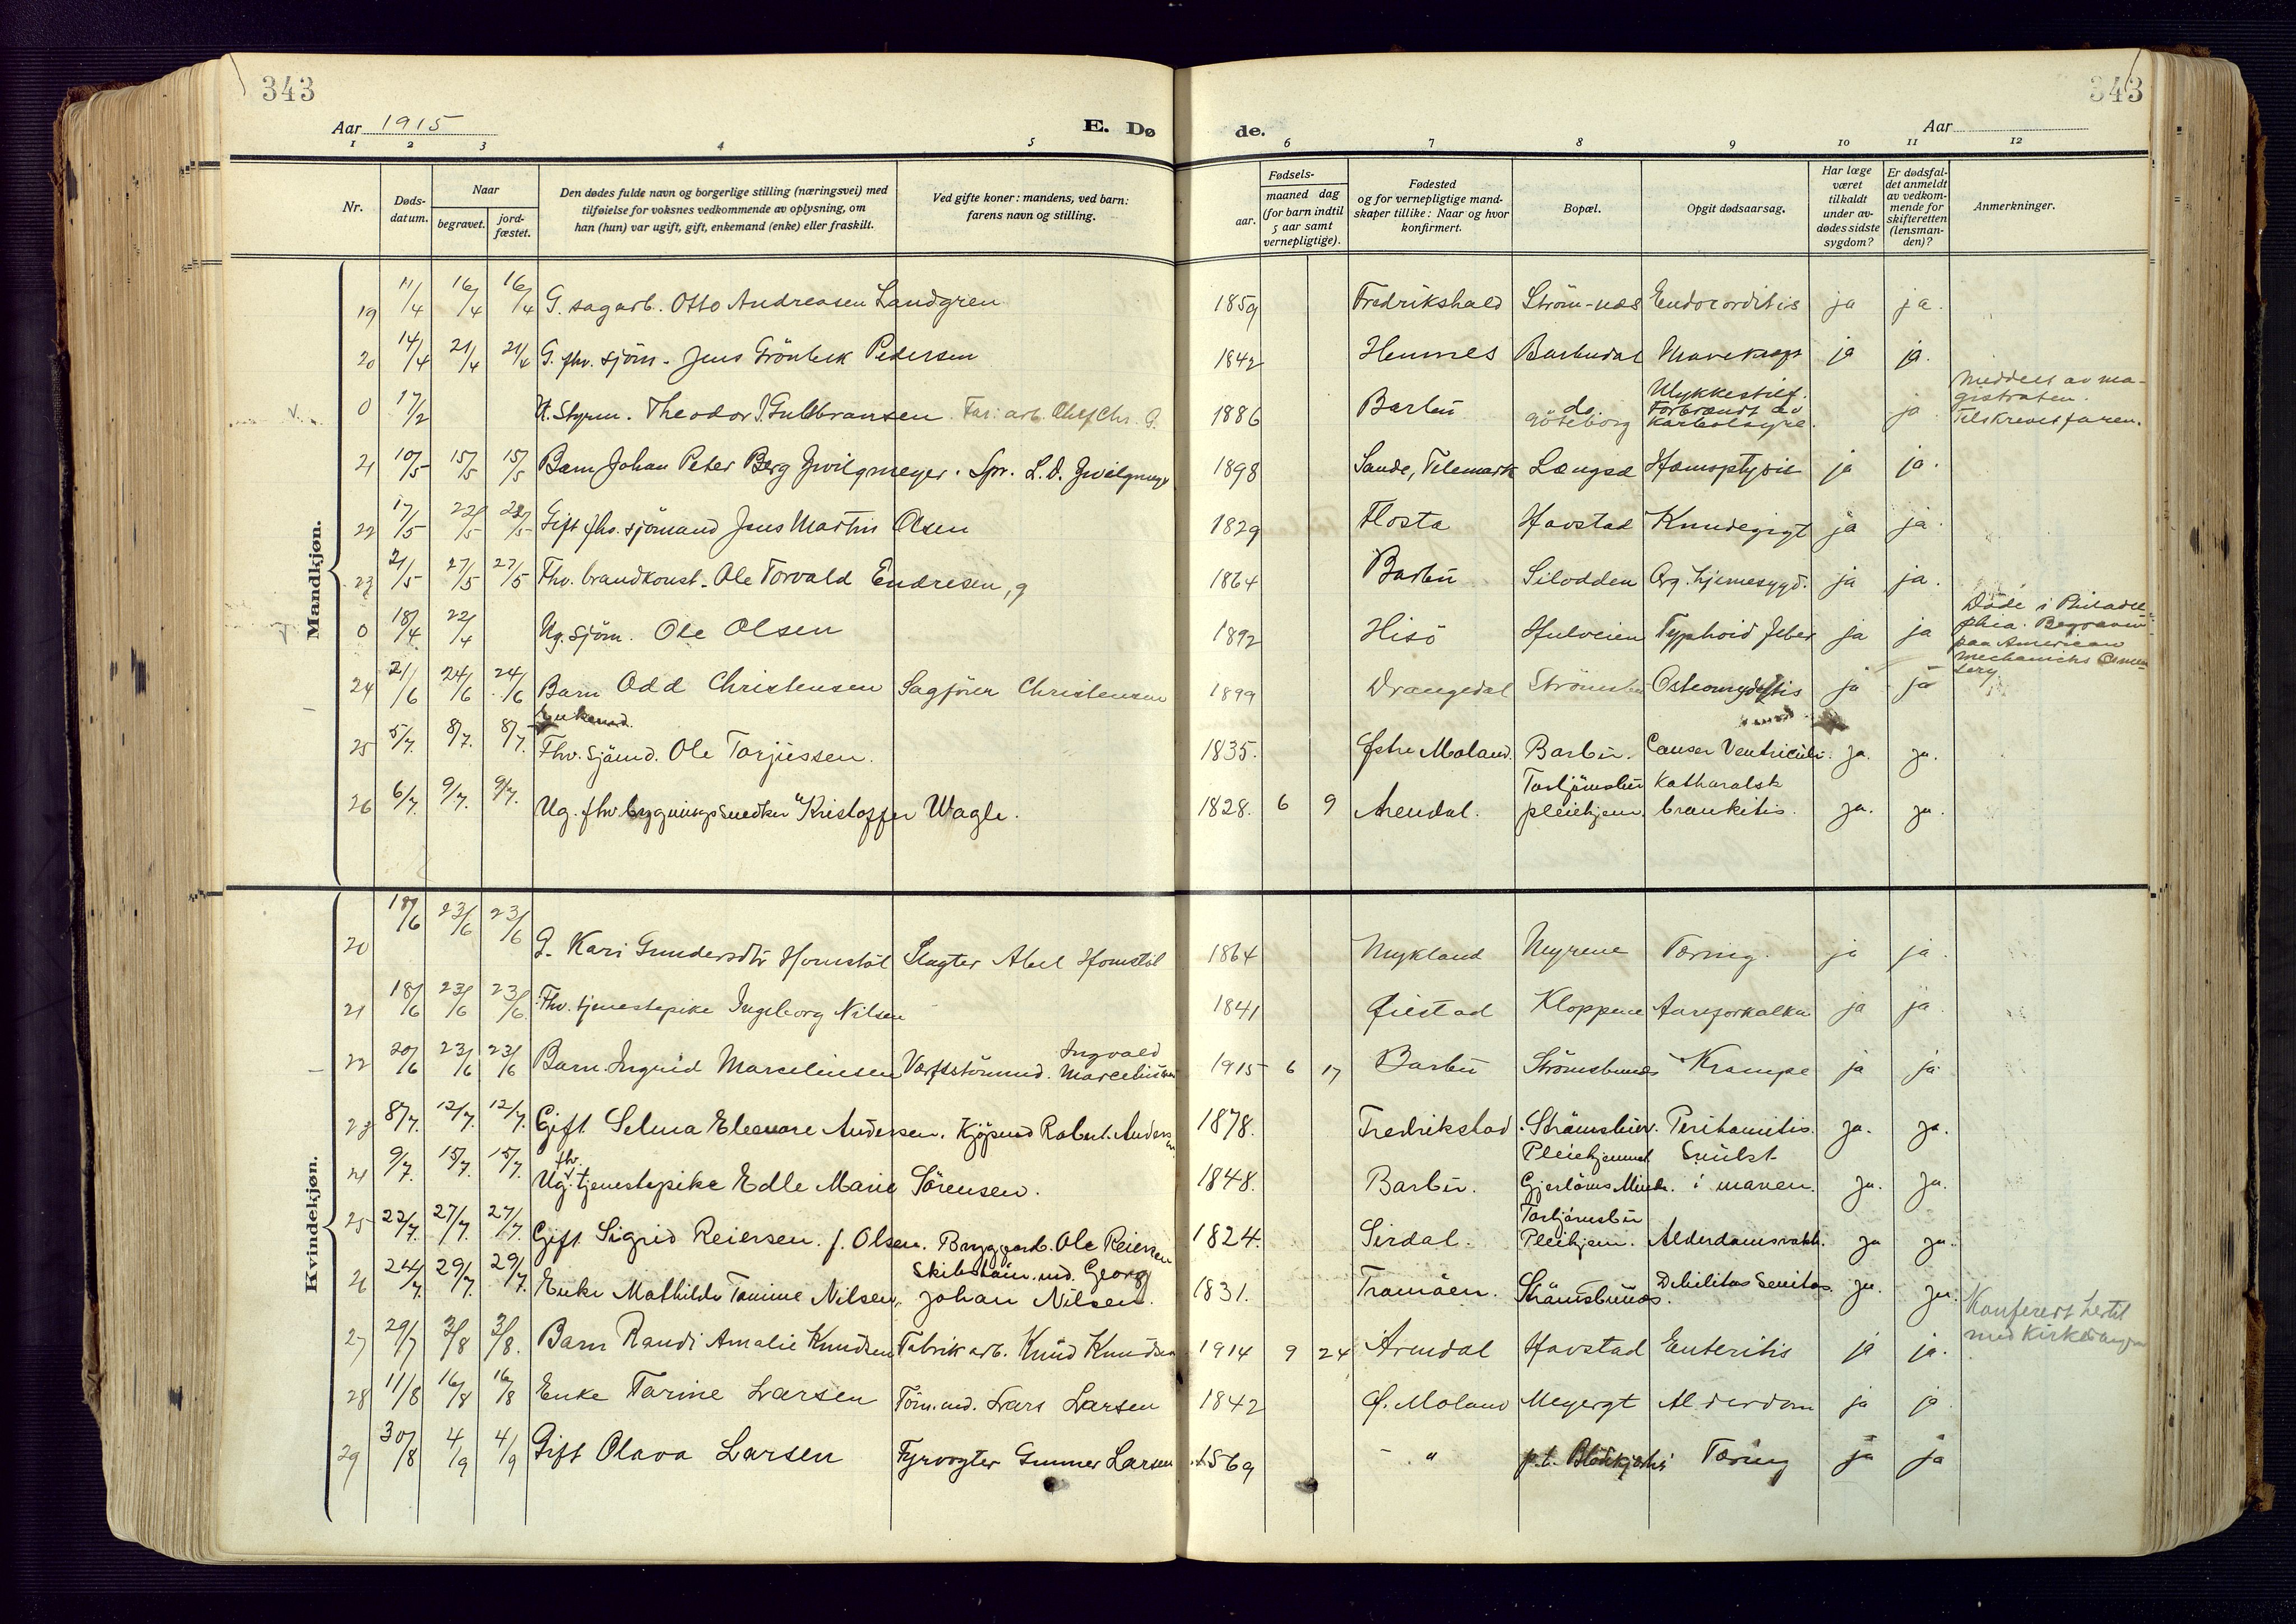 343
343
Aar 1915
E. Dø
de.
Aar
1 2 3 4 5 6 7 8 9 10 11 12
Nr.
Døds-
datum.
Naar
begravet.
jord-
fæstet.
Den dødes fulde navn og borgerlige stilling (næringsvei) med
tilføielse for voksnes vedkommende av oplysning, om
han (hun) var ugift, gift, enkemand (enke) eller fraskilt.
Ved gifte koner: mandens, ved barn:
farens navn og stilling.
Fødsels-
aar.
maaned dag
(for barn indtil
5 aar samt
vernepligtige).
Fødested
og for vernepligtige mand-
skaper tillike: Naar og hvor
konfirmert.
Bopæl.
Opgit dødsaarsag.
Har læge
været
tilkaldt
under av-
dødes sidste
sygdom?
Er dødsfal-
det anmeldt
av vedkom-
mende for
skifteretten
(lensman-
den)?
Anmerkninger.
Mandkjøn.
19 11/4 16/4 16/4 G. sagarb. Otto Andreasen Landgren 1859 Fredrikshald Ström-næs Endocorditis ja ja.
20 14/4 21/4 21/4 G. fhv. sjöm. Jens Grönbek Pedersen 1842 Barbudal ja ja.
0 17/2 U. Styrm. Theodor J. Gulbbransen Far: arb. Chr. G. 1886 Barbu do. Göteborg Ulykkestilf. Forbrændt av karbolsyre. ja Meddelt av ma-
gistraten.
Tilskrevet faren.
21 10/5 15/5 15/5 Barn Johan Peter Berg Zwilgmeyer. Spr. L. D. Zwilgmeyer 1898 Sande, Telemark Længsæ Hæmoptysis ja ja.
22 17/5 22/5 22/5 Gift fhv. sjömand Jens Martin Olsen 1829 Flosta Havstad Knudegigt ja ja.
23 21/5 27/5 27/5 Fhv. brandkonst. Ole Torvald Endresen, g 1864 Barbu Silodden Org. hjernesygd. ja ja.
0 18/4 22/4 Ug. sjöm. Ole Olsen 1892 Hisö Hulveien Typhoid feber ja ja Döde i Philadel-
phia. Begraven
paa American
mechanichs Ceme-
tery
24 21/6 24/6 24/6 Barn Odd Christensen Sagförer Christensen 1899 Drangedal Strömsbu Osteomyelitis ja ja
Enkemd.
25 5/7. 8/7. 8/7. Fhv. Sjömd. Ole Torjussen. 1835. Østre Moland. Barbu. Cancer Ventriculi. ja. ja.
26 6/7. 9/7. 9/7. Ug. fhv. bygningssnedker Kristoffer Wagle. 1828. 6 9 Arendal. Torbjörnsbu pleiehjem. Katharalsk brankitis. ja. ja.
Kvindekjøn.
20 18/6 23/6 23/6 G. Kari Gundersdtr Homstöl Slagter Abel Homstöl 1864 Mykland Myrene Tæring. ja ja.
21 18/6 23/6 23/6. Fhv. tjenestepike Ingeborg Nilsen 1841 Øiestad Kloppene Aareforkalkn ja ja.
22 20/6 23/6 23/6 Barn Ingrid Marcelinsen Værftstömmd. Ingvald Marcelinsen 1915 6 17 Barbu Strömsbunes Krampe ja ja.
23 8/7. 12/7. 12/7. Gift Selma Eleonore Andersen. Kjöpmd Robert Andersen 1878. Fredrikstad. Strömsbu. Peritonitis. ja. ja.
24 9/7. 15/7. 15/7. Ug. fhv. tjenestepike Edle Marie Sörensen. 1848. Barbu. Pleiehjemmet Gjertöms Minde. Svulst i maven. ja. ja.
25 22/7. 27/7. 27/7. Gift Sigrid Reiersen. f. Olsen. Bryggarb. Ole Reiersen 1824. Sirdal. Torbjörnsbu Pleihjem. Alderdomssvakh. ja ja.
26 24/7 29/7. 29/7. Enke Mathilde Tomine Nilsen. Skibstöm.md. Georg Johan Nilsen. 1831. Tromöen. Strömsbunes. Debilitas Senitas ja. ja.
Konferert hertil
med Kirke
27 29/7 3/8 3/8. Barn Randi Amalie Knudsen Fabrikarb. Knud Knudsen 1914 9 24 Arendal Havstad Enteritis ja ja.
28 11/8 16/8 16/8 Enke Tarine Larsen Töm.md. Lars Larsen 1842 Ø. Moland Alderdom ja ja.
29 30/8 4/9 4/9 Gift Olava Larsen Fyrvogter Gunner Larsen 1869 - " p.t. Blödekjær Tæring ja ja